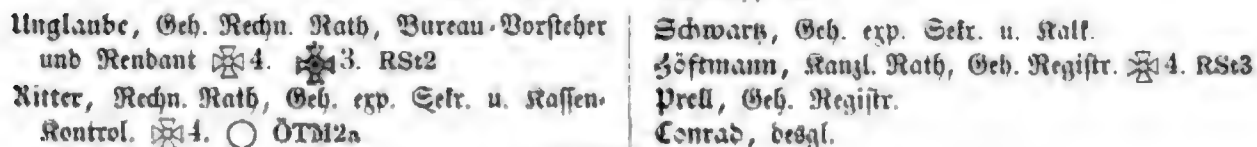 Unglaube, Geh. Rechn. Rath, Bureau-Vorsteher
und Rendant 4. 3. RSt2
Ritter, Rechn. Rath, Geh. exp. Sekr. u. Kassen-
Kontrol. 4. ÖTM2a
Schwartz, Geh. exp. Sekr. u. Kalk.
Höftmann, Kanzl. Rath, Geh. Registr. 4. RSt3
Prell, Geh. Registr.
Conrad, desgl.